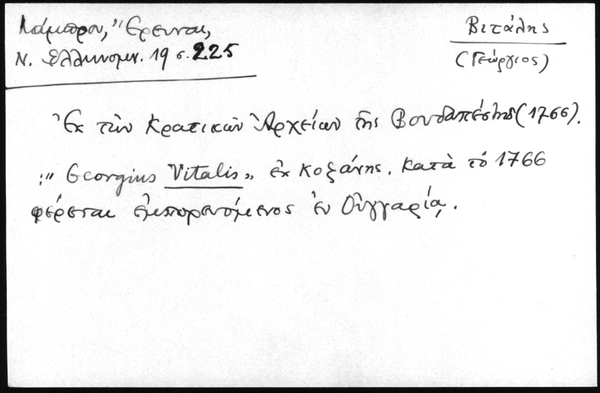 Λάμπρου, "Έρευναι,
Ν. Ελληνομν. 19 σ. 225
Βιτάλης
(Γεώργιος)
Ἐκ τῶν Κρατικῶν Ἀρχείων τῆς Βουδαπέστης (1766).
:" Georgius Vitalis" ἐκ Κοζάνης. Κατὰ τὸ 1766
φέρεται ἐμπορευόμενος ἐν Οὑγγαρίᾳ.